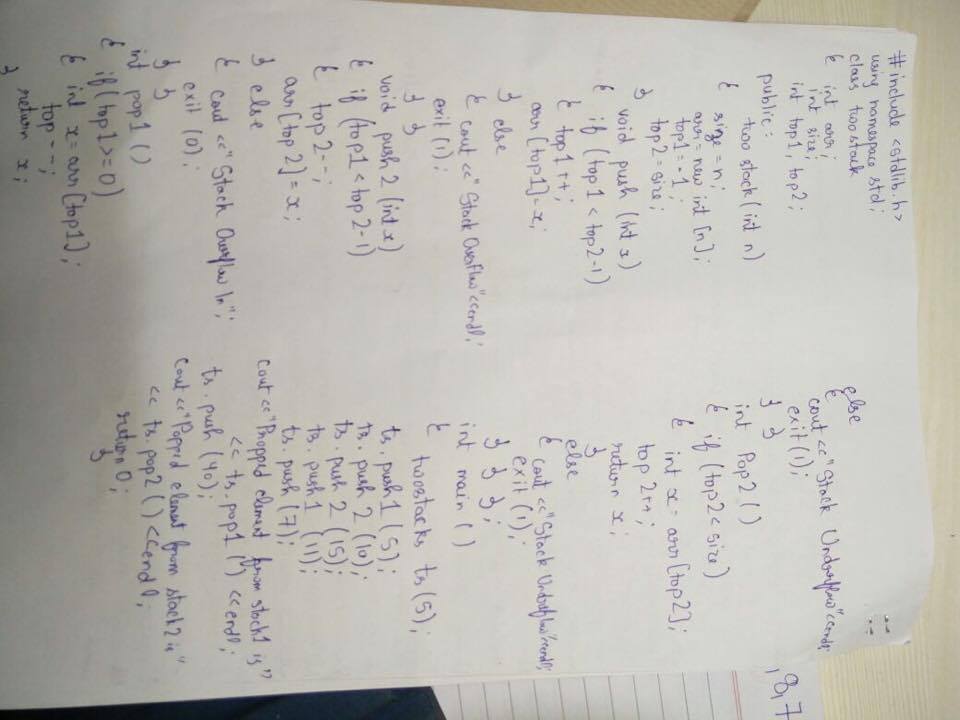 #include <stdlib.h>
using namespace std;
class two stack
{ int arr;
int size;
int top1, top2;
public:
two stack (int n)
{ size = n;
arr = new int [n];
top1 = -1;
top2 = size;
}
void push (int x)
{ if (top1 < top2-1)
{ top1++;
arr[top1]=x;
} else
{ cout << "Stack Overflow"<<endl;
exit (1);
} }
void push 2 (int x)
{ if (top1 < top2-1)
{ top2--;
arr[top2] = x;
} else
{ cout << "Stack Overflow In";
exit (0);
} }
int pop1 ()
{ if (top1>=0)
{ int x = arr[top1];
top--;
return x;
}
else
{
cout << "Stack Underflow"<<endl;
exit (1);
} }
int Pop2 ()
{ if (top2 < size)
{ int x = arr[top2];
top 2++;
return x;
}
else
{ cout << "Stack Undrflow"<<endl;
exit (1);
} } };
int main ()
{
twostacks ts (5);
ts. push1 (5);
ts. push 2 (10);
ts. push 2 (15);
ts. push 1 (11);
ts. push (7);
cout << "Propped element from stack1 is"
<< ts. pop1 () << endl;
ts. push (40);
cout << "Poppid element from stack2 is"
<< ts. pop2 () << endl;
return 0;
}
,8,7